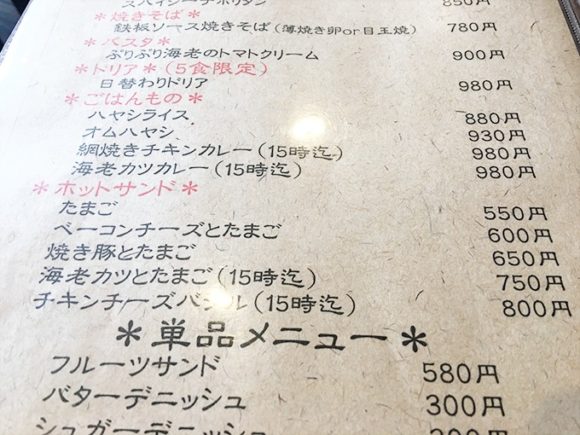 スパイシーナポリタン 850円
＊焼きそば＊
鉄板ソース焼きそば(薄焼き卵or目玉焼) 780円
＊パスタ＊
ぷりぷり海老のトマトクリーム 900円
＊ドリア＊(5食限定)
日替わりドリア 980円
＊ごはんもの＊
ハヤシライス 880円
オムハヤシ 930円
網焼きチキンカレー(15時迄) 980円
海老カツカレー(15時迄) 980円
＊ホットサンド＊
たまご 550円
ベーコンチーズとたまご 600円
焼き豚とたまご 650円
海老カツとたまご(15時迄) 750円
チキンチーズバジル(15時迄) 800円
＊単品メニュー＊
フルーツサンド 580円
バターデニッシュ 300円
シュガーデニッシュ